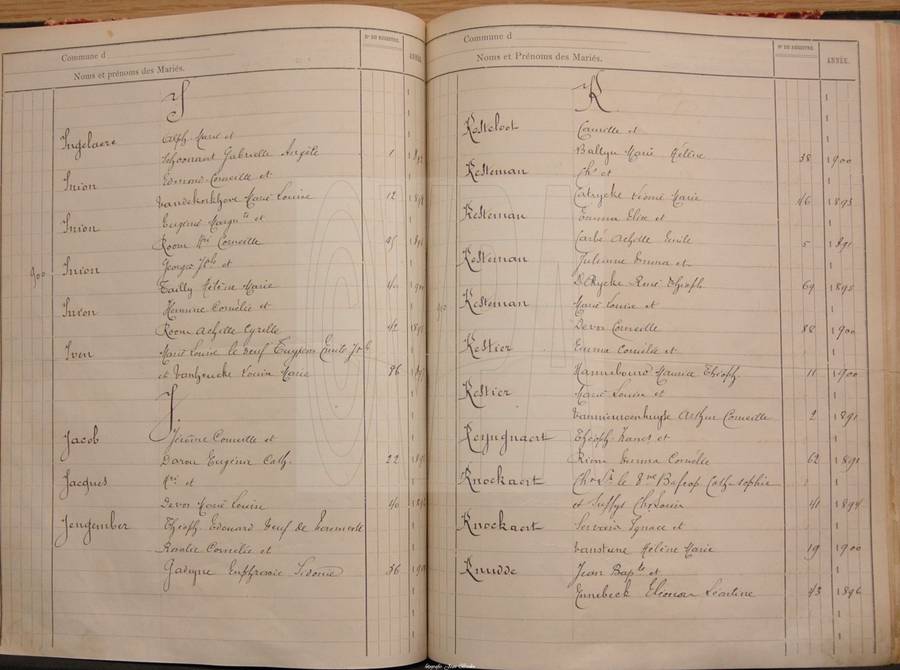 Commune d
Noms et prénoms des Mariés.
N° DU REGISTRE.
ANNÉE
I
Ingelaere Alph. Marie et
Schoonaert Gabrielle Angèle 1
Inion Edmond Corneille et
Vandekerkhove Marie Louise 12
Inion Eugénie Margte et
Room Hri Corneille 45
900
Inion Georges Jph et
Tailly Hélène Marie 40
Inion Hermine Cornélie et
Room Achille Cyrille 42
Iven Marie Louise le veuf Emile Jph
et Louise Marie 96
J
Jacob Jérôme Corneille et
Darou Eugénie Cath. 22
Jacques Hri et
Devos Marie Louise 40
Jengember Théoph. Edouard Veuf de
Rosalie Cornélie et
Euphrasie Sidonie 56
Commune d
Noms et Prénoms des Mariés.
N° DU REGISTRE
ANNÉE.
K
Kesteloot Camille et
Marie Hélène 38 1900
Kesteman Chs et
Catrycke Léonie Marie 46 1895
Kesteman Emma Elise et
Carbé Achille Emile 5 1891
Kesteman Julienne Emma et
DeRycke René Théoph 69 1895
Kesteman Marie Louise et
Devos Corneille 88 1900
Kestier Emma Cornélie et
Maurice Théoph. 11 1900
Kestier Marie Louise et
Vanmeenhuyse Arthur Corneille 2 1891
Keyngnaert Théoph. Frans et
Emma Cornélie 62 1891
Knockaert Chs Ls le Vve Cath Sophie
et Chs Louis 41 1894
Knockaert Servais Ignace et
Vanstune Hélène Marie 19 1900
Knudde Jean Bapte et
Ennebeck Eléonore Léontine 43 1896